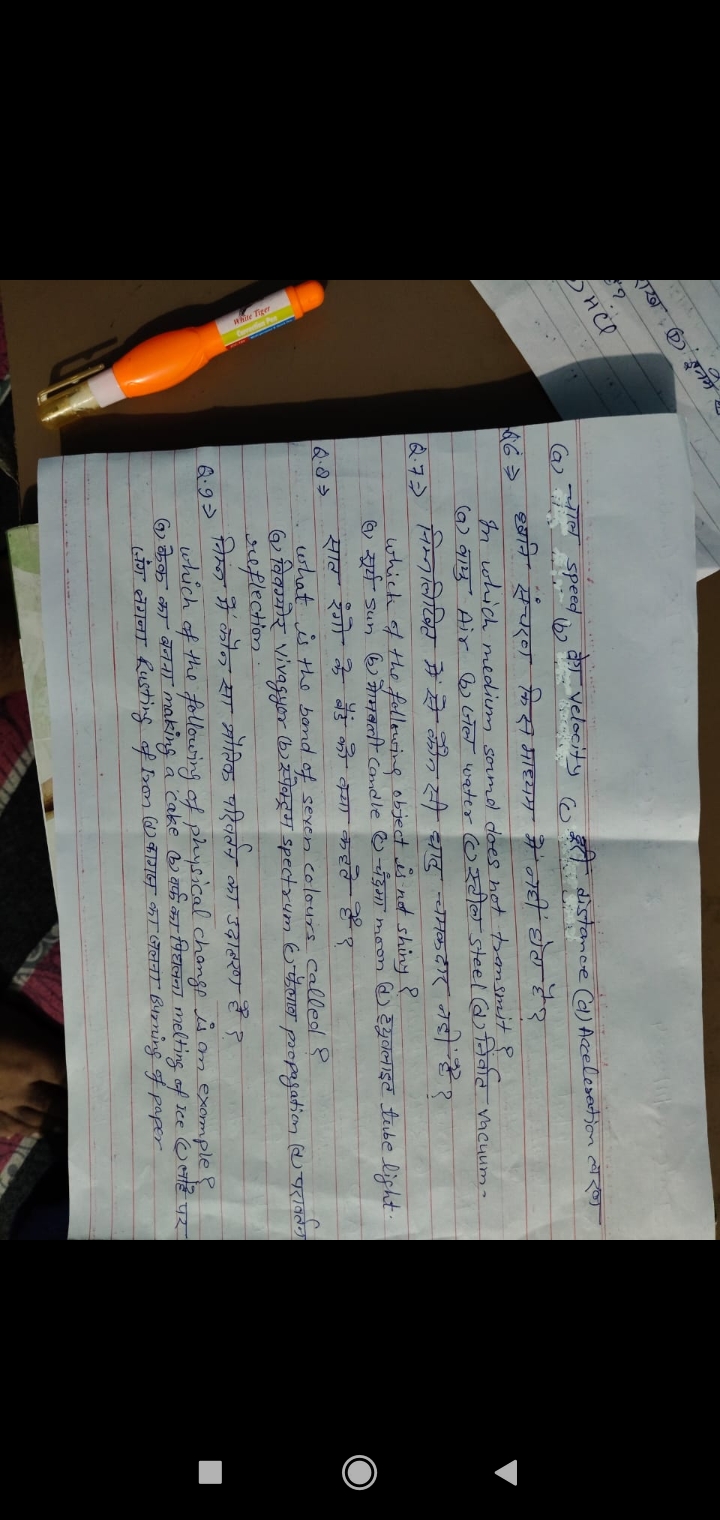 (a) चाल speed (b) वेग velocity (c) दूरी distance (d) Acceleration त्वरण
Q.6 ⇒ ध्वनि संचरण किस माध्यम में नहीं होता है?
In which medium sound does not transmit?
(a) वायु Air (b) जल water (c) स्टील steel (d) निर्वात vacuum.
Q.7 ⇒ निम्नलिखित में से कौन सी धातु चमकदार नही है?
which of the following object is not shiny?
(a) सूर्य sun (b) मोमबत्ती candle (c) चंद्रमा moon (d) ट्यूबलाइट tube light.
Q.8 ⇒ सात रंगो के बैंड को क्या कहते हैं?
what is the band of seven colours called?
(a) विबग्योर Vivagyor (b) स्पेक्ट्रम spectrum (c) फैलाव propagation (d) परावर्तन
reflection.
Q.9 ⇒ निम्न में कौन सा भौतिक परिवर्तन का उदाहरण है?
which of the following of physical change is an example?
(a) केक का बनना making a cake (b) बर्फ का पिघलना melting of Ice (c) लोहे पर
जंग लगना Rusting of Iron (d) कागज का जलना Burning of paper
HCl
White Tiger
Correction Pen